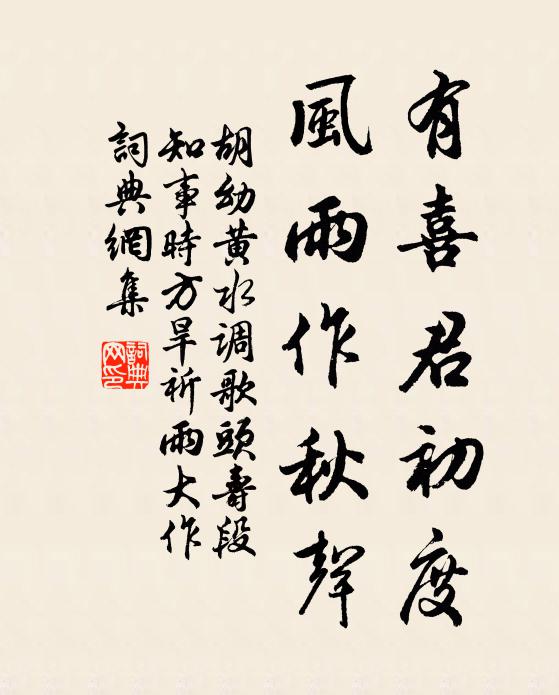 有喜君初度
風雨作秋聲
胡幼黄水调歌頭壽段
知事時方旱祈雨大作
詞典網集
詞典網印